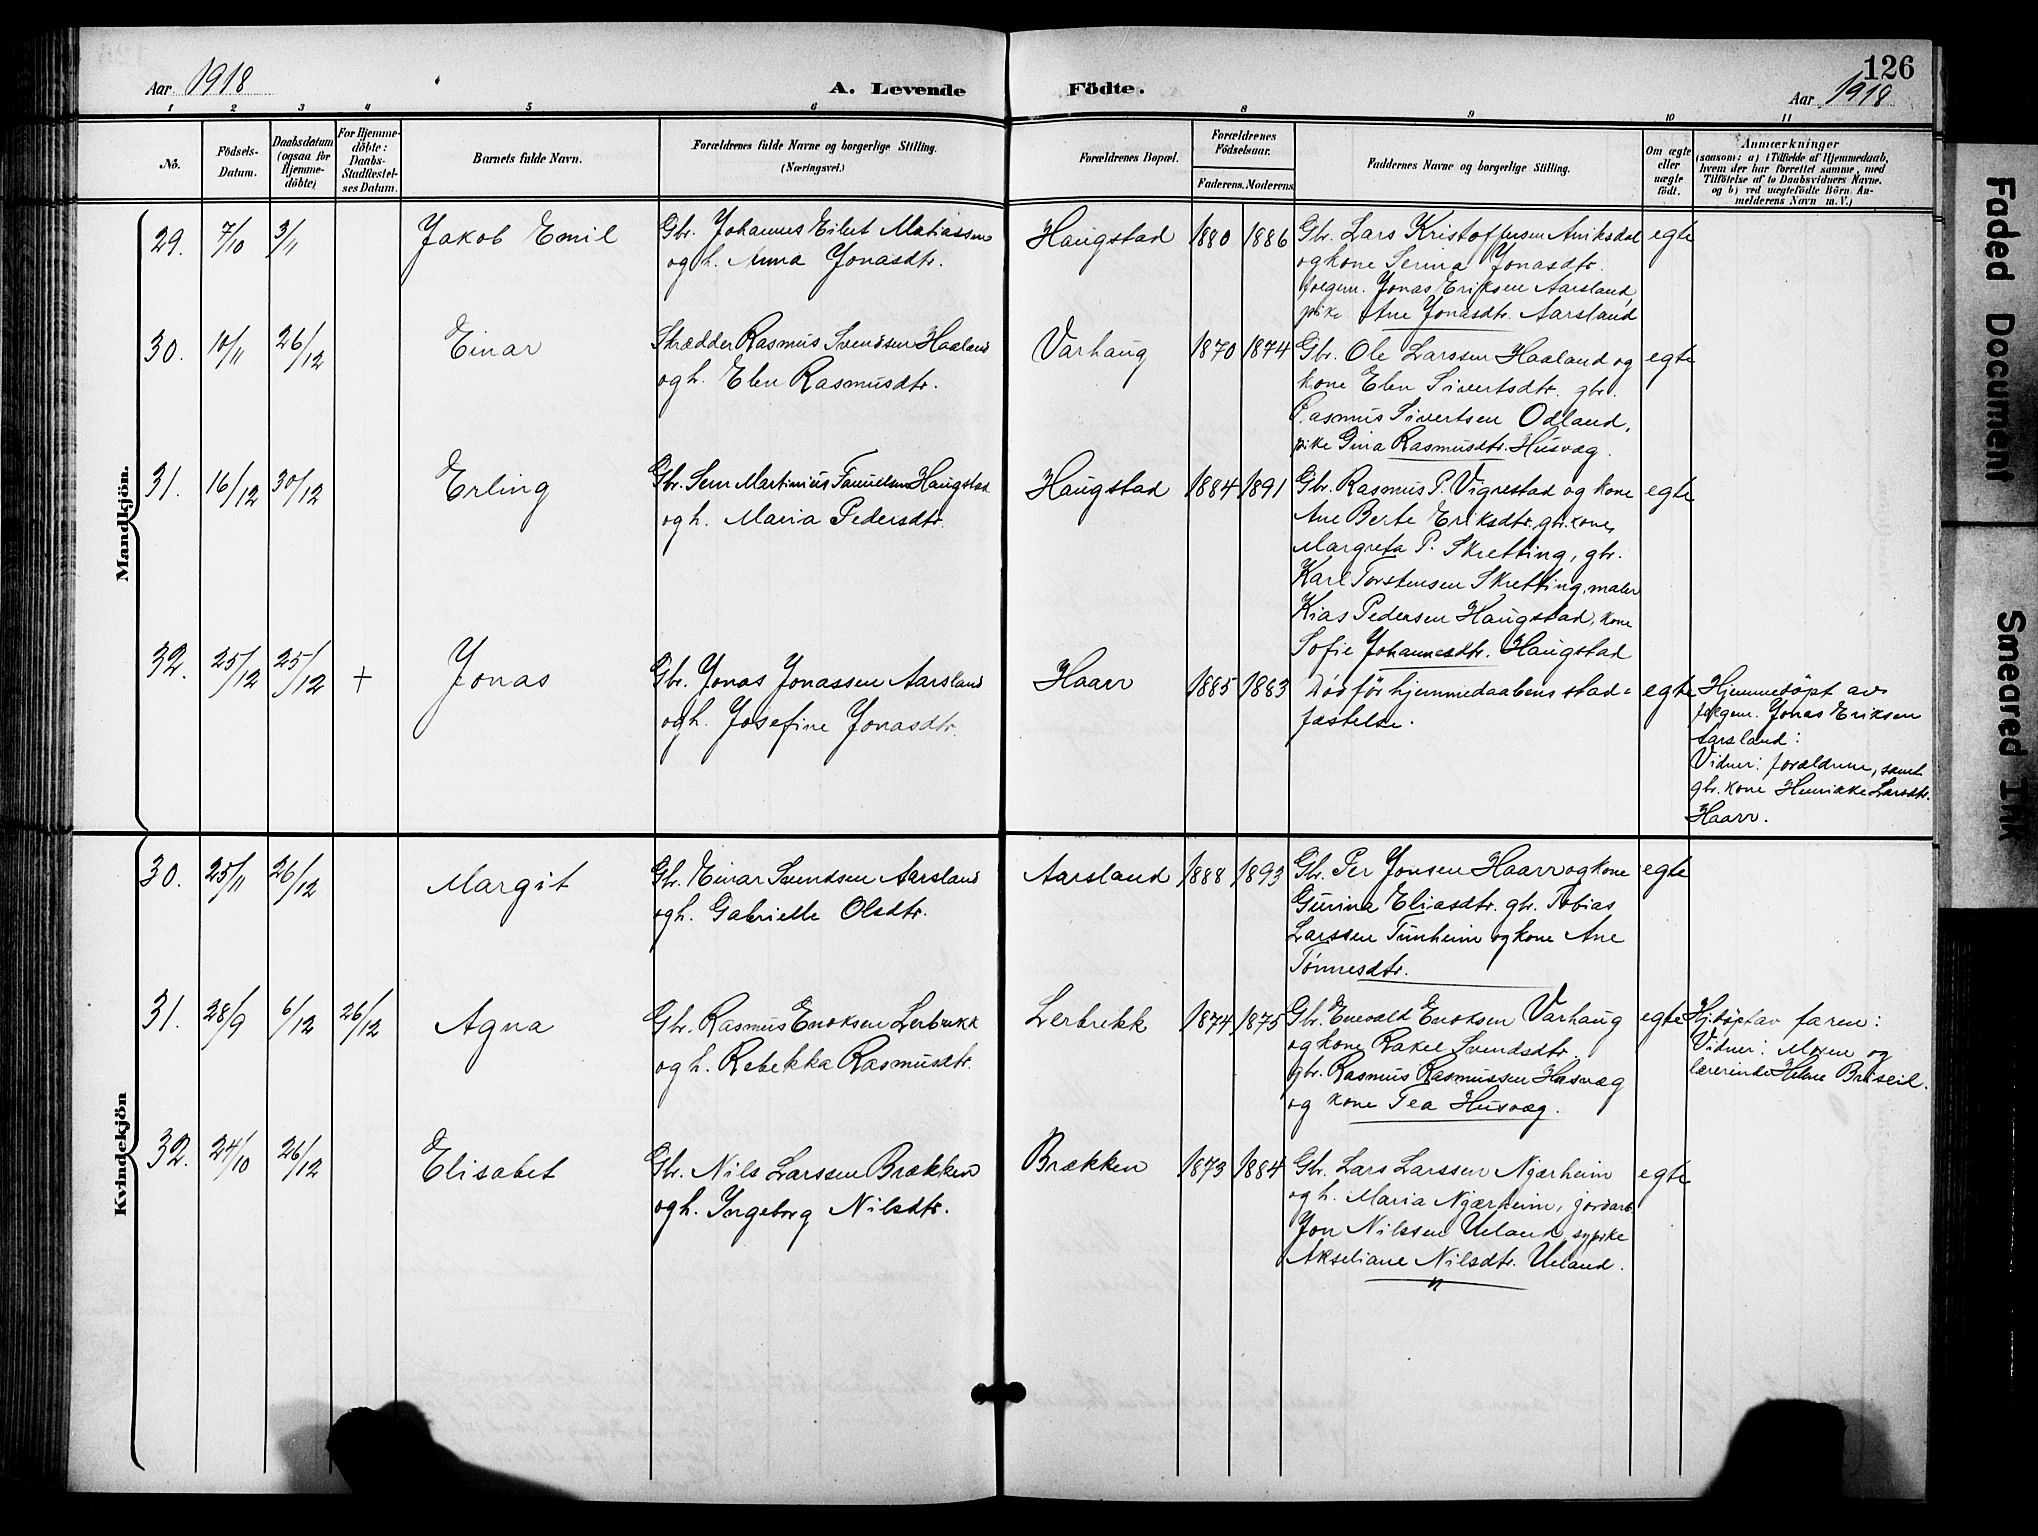 126
Aar 1918
A. Levende
Födte.
Aar 1918
1 2 3 4 5 6 8 9 10 11
No.
Födsels-
Datum.
Daabsdatum
(ogsaa for
Hjemme-
döbte)
For Hjemme-
döbte:
Daabs-
Stadfæstel-
ses Datum.
Barnets fulde Navn.
Forældrenes fulde Navne og borgerlige Stilling.
(Næringsvei.)
Forældrenes Bopæl.
Forældrenes
Födselsaar.
Faderens. Moderens.
Faddernes Navne og borgerlige Stilling.
Om ægte
eller
uægte
födt.
Anmærkninger
(saasom: a) i Tilfælde af Hjemmedaab,
hvem der har forrettet samme, med
Tilföielse af to Daabsvidners Navne,
og b) ved uægtefödte Börn An-
melderens Navn m.V.)
Mandkjön.
29. 7/10 3/11 Jakob Emil
Gbr. Johannes Eilert Matiassen
og h. Anna Jonasdtr.
Haugstad 1880 1886
Gbr. Lars Kristoffersen Aniksdal
og kone Serina Jonasdtr.
folgem. Jonas Eriksen Aarsland,
pike Ane Jonasdtr. Aarsland
egte
30. 10/11 26/12 Einar
Skrædder Rasmus Svendsen Haaland
og h. Elen Rasmusdtr.
Varhaug 1870 1874
Gbr. Ole Larssen Haaland og
kone Elen Sivertsdtr. gbr.
Rasmus Sivertsen Odland,
pike Gina Rasmusdtr. Husvæg.
egte
31. 16/12 30/12 Erling
Gbr. Martinius Haugstad
og h. Maria Pedersdtr.
Haugstad 1884 1891
Gbr. Rasmus P. Vigrestad og kone
Ane Berte Eriksdtr, gbr. kone
Margreta P. Skretting, gbr.
Karl Torstensen Skretting, maler
Kias Pedersen Haugstad, kone
Sofie Johannesdtr. Haugstad
egte
32. 25/12 25/12 + Jonas
Gbr. Jonas Jonassen Aarsland
og h. Josefine Jonasdtr.
Haarr 1885 1883
Død før hjemmedaabens stad=
fæstelse.
egte
Hjemmedøpt av
folgem. Jonas Eriksen
Aarsland:
Vidner: forældrene, samt
gbr. kone Henrikke Larsdtr.
Haarr.
Kvindekjön
30. 25/11 26/12 Margit
Gbr. Einar Svendsen Aarsland
og h. Gabrielle Olsdtr.
Aarsland 1888 1893
Gbr. Per Jonsen Haarr og kone
Gurina Eliasdtr. gbr. Tobias
Larssen Tunheim og kone Ane
Tønnesdtr.
egte
31. 28/9 6/12 26/12 Agna
Gbr. Rasmus Enoksen Lerbrekk
og h. Rebekka Rasmusdtr.
Lerbrekk 1874 1875
Gbr. Enevald Enoksen Varhaug
og kone Rakel Svendsdtr.
gbr. Rasmus Rasmussen Husvæg
og kone Tea Husvæg.
egte
Hj.døpt av faren:
Vidner: Moren og
lærerinde Helene Briseid.
32. 24/10 26/12 Elisabet
Gbr. Nils Larssen Brækken
og h. Ingeborg Nilsdtr.
Brækken 1873 1884
Gbr. Lars Larssen Njærheim
og h. Maria Njærheim, jordarb.
Jon Nilssen Ueland, sypike
Akseliane Nilsdtr. Ueland.
egte
Faded Document
Smeared Ink